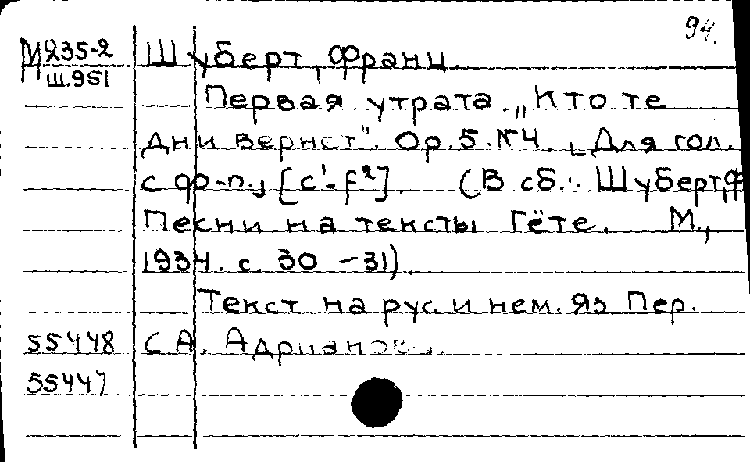 94.
М235-2 Шуберт, Франц.
Ш.951
Первая утрата. „Кто те
дни вернет". Ор.5.№4. [Для гол.
с ф-п.] [c¹-f²]. (В сб.: Шуберт, Ф
Песни на тексты Гёте. М.,
1934. с. 30 -31).
Текст на рус. и нем. яз Пер.
55448 С.А. Адрианов.
55447